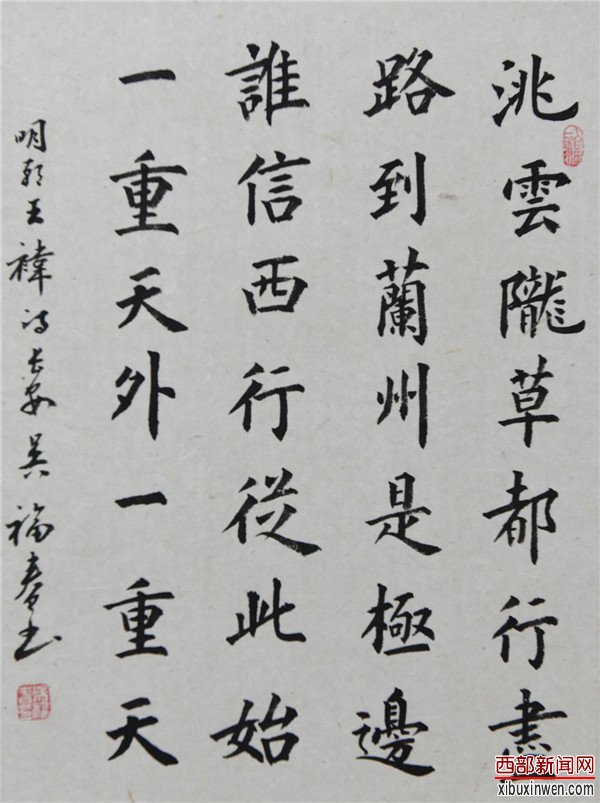 洮雲隴草都行盡
路到蘭州是極邊
誰信西行從此始
一重天外一重天
明朝王褘诗長安吴福春书
西部新闻网
xibuxinwen.com